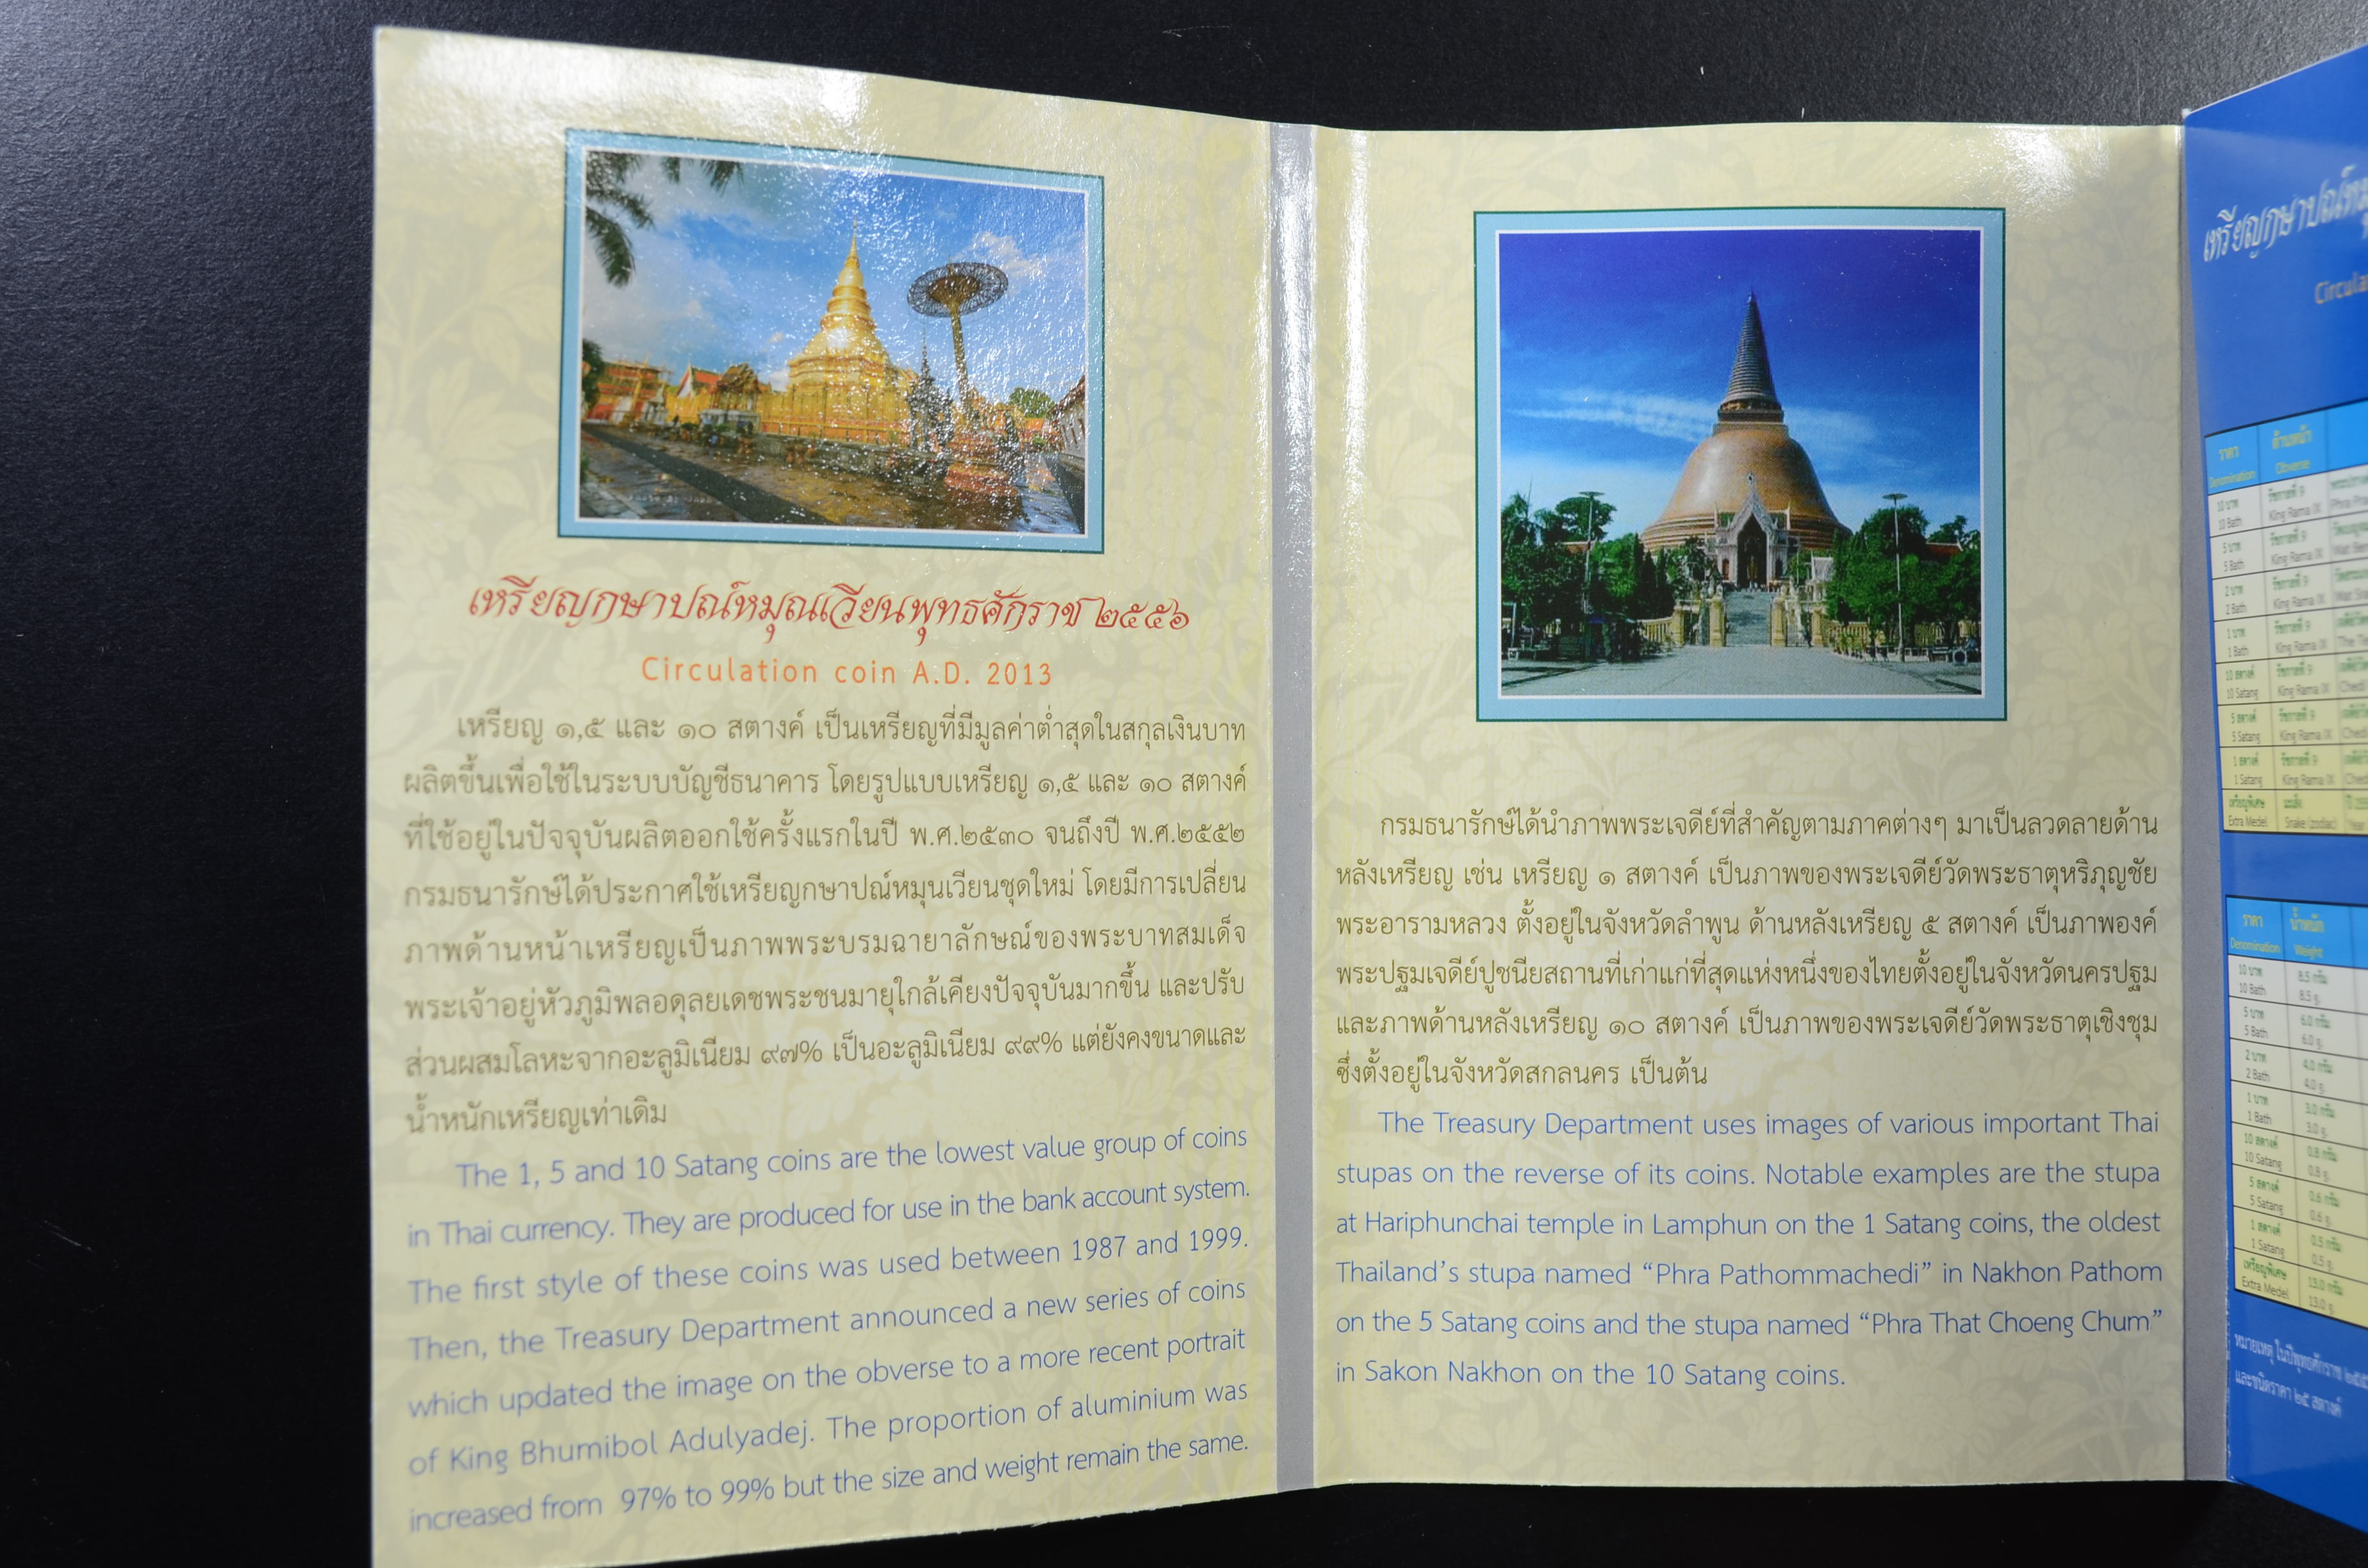 เหรียญกษาปณ์หมุณเวียนพุทธศักราช ๒๕๕๖
Circulation coin A.D. 2013
เหรียญ ๑,๕ และ ๑๐ สตางค์ เป็นเหรียญที่มีมูลค่าต่ำสุดในสกุลเงินบาท
ผลิตขึ้นเพื่อใช้ในระบบบัญชีธนาคาร โดยรูปแบบเหรียญ ๑,๕ และ ๑๐ สตางค์
ที่ใช้อยู่ในปัจจุบันผลิตออกใช้ครั้งแรกในปี พ.ศ.๒๕๓๐ จนถึงปี พ.ศ.๒๕๕๒
กรมธนารักษ์ได้ประกาศใช้เหรียญกษาปณ์หมุนเวียนชุดใหม่ โดยมีการเปลี่ยน
ภาพด้านหน้าเหรียญเป็นภาพพระบรมฉายาลักษณ์ของพระบาทสมเด็จ
พระเจ้าอยู่หัวภูมิพลอดุลยเดชพระชนมายุใกล้เคียงปัจจุบันมากขึ้น และปรับ
ส่วนผสมโลหะจากอะลูมิเนียม ๙๗% เป็นอะลูมิเนียม ๙๙% แต่ยังคงขนาดและ
น้ำหนักเหรียญเท่าเดิม
The 1, 5 and 10 Satang coins are the lowest value group of coins
in Thai currency. They are produced for use in the bank account system.
The first style of these coins was used between 1987 and 1999.
Then, the Treasury Department announced a new series of coins
which updated the image on the obverse to a more recent portrait
of King Bhumibol Adulyadej. The proportion of aluminium was
increased from 97% to 99% but the size and weight remain the same.
กรมธนารักษ์ได้นำภาพพระเจดีย์ที่สำคัญตามภาคต่างๆ มาเป็นลวดลายด้าน
หลังเหรียญ เช่น เหรียญ ๑ สตางค์ เป็นภาพของพระเจดีย์วัดพระธาตุหริภุญชัย
พระอารามหลวง ตั้งอยู่ในจังหวัดลำพูน ด้านหลังเหรียญ ๕ สตางค์ เป็นภาพองค์
พระปฐมเจดีย์ปูชนียสถานที่เก่าแก่ที่สุดแห่งหนึ่งของไทยตั้งอยู่ในจังหวัดนครปฐม
และภาพด้านหลังเหรียญ ๑๐ สตางค์ เป็นภาพของพระเจดีย์วัดพระธาตุเชิงชุม
ซึ่งตั้งอยู่ในจังหวัดสกลนคร เป็นต้น
The Treasury Department uses images of various important Thai
stupas on the reverse of its coins. Notable examples are the stupa
at Hariphunchai temple in Lamphun on the 1 Satang coins, the oldest
Thailand's stupa named “Phra Pathommachedi” in Nakhon Pathom
on the 5 Satang coins and the stupa named “Phra That Choeng Chum”
in Sakon Nakhon on the 10 Satang coins.
เหรียญกษาปณ์
ราคา ด้านหน้า
Denomination Obverse
10 บาท รัชกาลที่ 9
10 Bath King Rama IX
5 บาท รัชกาลที่ 9
5 Bath King Rama IX
2 บาท รัชกาลที่ 9
2 Bath King Rama IX
1 บาท รัชกาลที่ 9
1 Bath King Rama IX
10 สตางค์ รัชกาลที่ 9
10 Satang King Rama IX
5 สตางค์ รัชกาลที่ 9
5 Satang King Rama IX
1 สตางค์ รัชกาลที่ 9
1 Satang King Rama IX
เหรียญพิเศษ
Extra Medel Snake (zodiac)
ราคา น้ำหนัก
Denomination Weight
10 บาท 8.5 กรัม
10 Bath 8.5 g.
5 บาท 6.0 กรัม
5 Bath 6.0 g.
2 บาท 4.0 กรัม
2 Bath 4.0 g.
1 บาท 3.0 กรัม
1 Bath 3.0 g.
10 สตางค์ 0.8 กรัม
10 Satang 0.8 g.
5 สตางค์ 0.6 กรัม
5 Satang 0.6 g.
1 สตางค์ 0.5 กรัม
1 Satang 0.5 g.
เหรียญพิเศษ 13.0 กรัม
Extra Medel 13.0 g.
หมายเหตุ ในปีพุทธศักราช
และชนิดราคา ๒๕ สตางค์